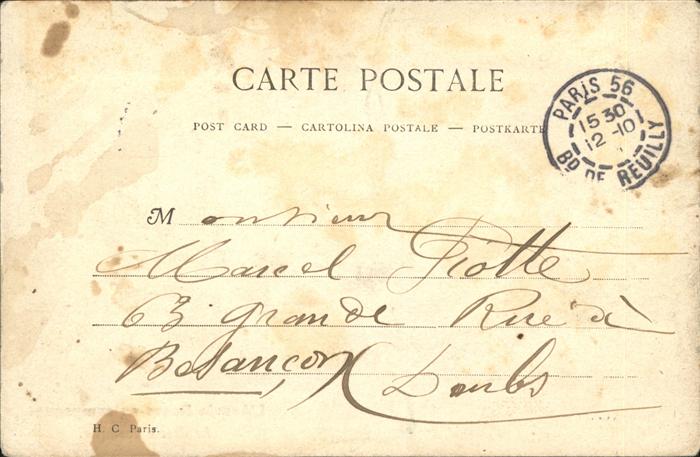 CARTE POSTALE
POST CARD — CARTOLINA POSTALE — POSTKARTE
PARIS 56
15 30
12 -10
BD DE REUILLY
Monsieur
Marcel Piotte
63 grande Rue à
Besançon (Doubs
H. C Paris.